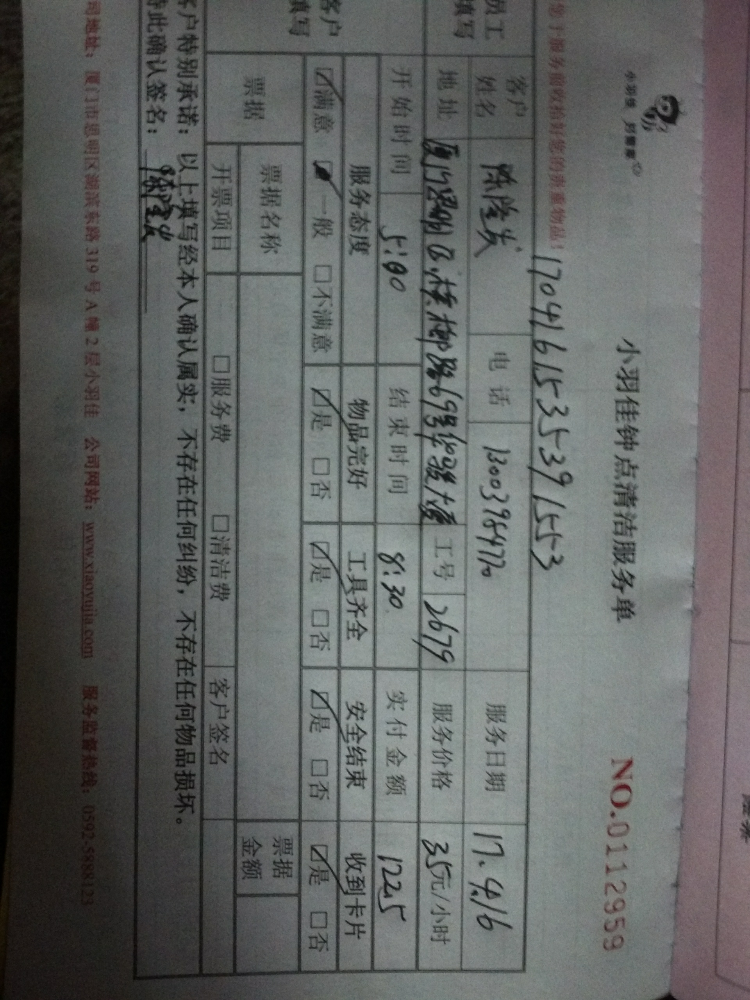 小羽佳 好管家
小羽佳钟点清洁服务单
NO.0112959
17041615353391553
客户姓名 陈隆发 电话 13003984770 服务日期 17.4.16
地址 工号 2679 服务价格 35元/小时
开始时间 5:00 结束时间 8:30 实付金额 122.5
服务态度 物品完好 工具齐全 安全结束 收到卡片
☑满意 一般 □不满意 ☑是 □否 ☑是 □否 ☑是 □否 ☑是 □否
票据 票据名称 票据金额
开票项目 □服务费 □清洁费 客户签名
客户特别承诺：以上填写经本人确认属实，不存在任何纠纷，不存在任何物品损坏。
此确认签名：
司地址：厦门市思明区湖滨东路319号A幢2层小羽佳 公司网站：www.xiaoyujia.com 服务监督热线：